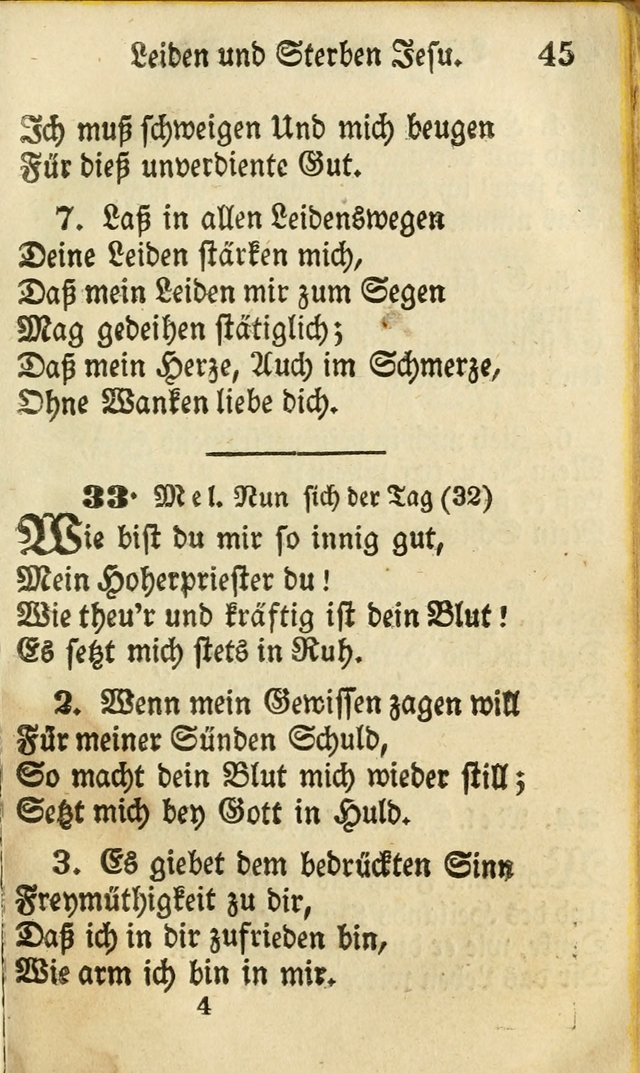 Leiden und Sterben Jesu. 45
Ich muß schweigen Und mich beugen
Für dieß unverdiente Gut.
7. Laß in allen Leidenswegen
Deine Leiden stärken mich,
Daß mein Leiden mir zum Segen
Mag gedeihen stätiglich;
Daß mein Herze, Auch im Schmerze,
Ohne Wanken liebe dich.
33. Mel. Nun sich der Tag (32)
Wie bist du mir so innig gut,
Mein Hoherpriester du!
Wie theu'r und kräftig ist dein Blut!
Es setzt mich stets in Ruh.
2. Wenn mein Gewissen zagen will
Für meiner Sünden Schuld,
So macht dein Blut mich wieder still;
Setzt mich bey Gott in Huld.
3. Es giebet dem bedrückten Sinn
Freymüthigkeit zu dir,
Daß ich in dir zufrieden bin,
Wie arm ich bin in mir.
4